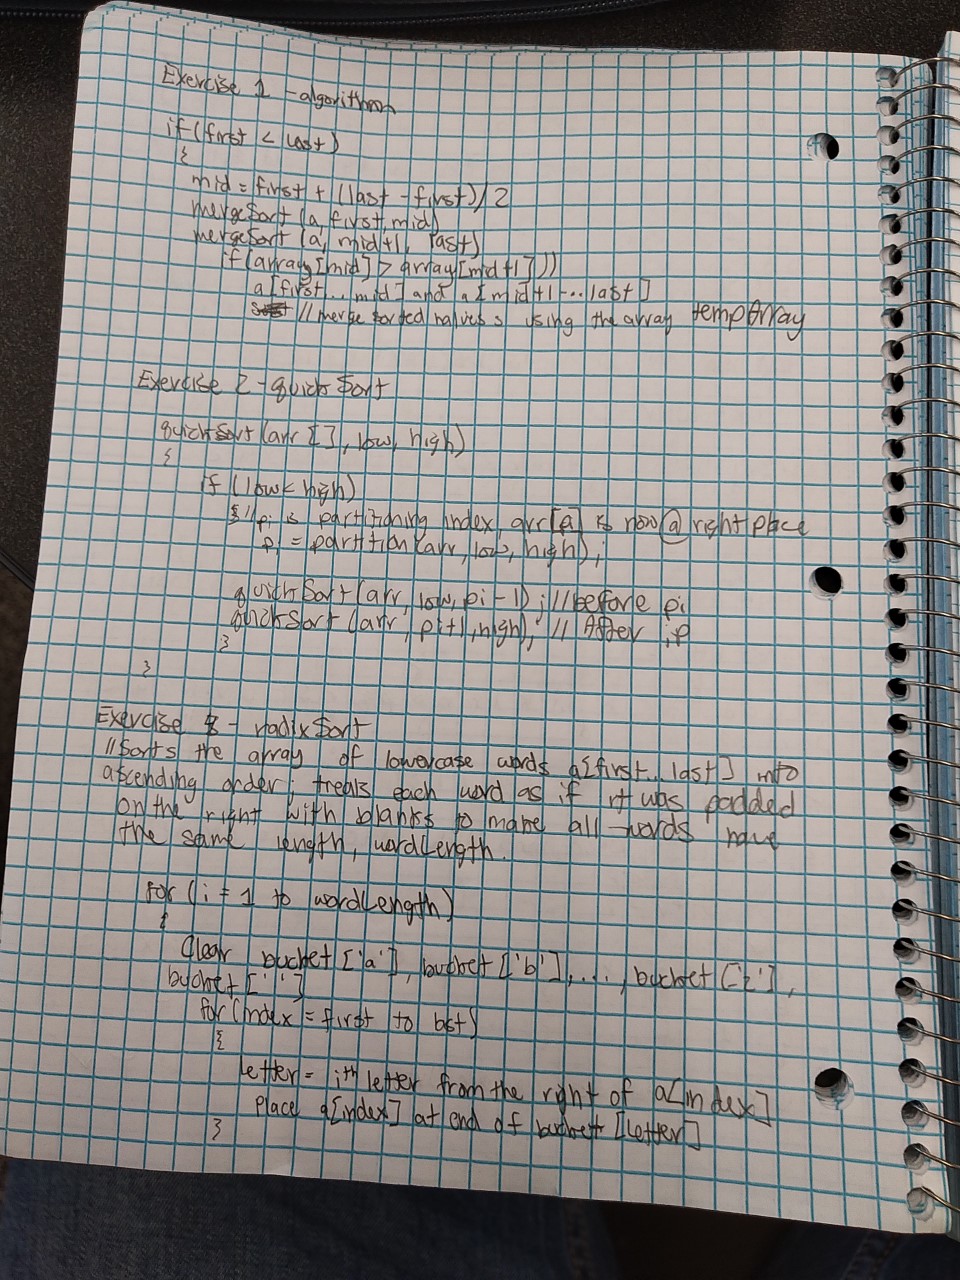 Exercise 1 - algorithm
if (first < last)
{
mid = first + (last - first)/2
mergeSort (a, first, mid)
mergeSort (a, mid+1, last)
if (array[mid] > array[mid+1]))
a[first...mid] and a[mid+1...last]
// merge sorted halves using the array tempArray
Exercise 2 - quickSort
quickSort (arr [], low, high)
{
if (low < high)
{ // pi is partitioning index, arr[p] is now @ right place
pi = partition (arr, low, high);
quickSort (arr, low, pi - 1); // before pi
quickSort (arr, pi+1, high); // After ip
}
}
Exercise - radixSort
// Sorts the array of lowercase words a[first..last] into
ascending order; treats each word as if it was padded
on the right with blanks to make all words have
the same length, wordLength.
for (i = 1 to wordLength)
{
Clear bucket ['a'], bucket ['b'], ..., bucket ['z'],
bucket [' ']
for (index = first to last)
{
letter = ith letter from the right of a[index]
Place a[index] at end of bucket [letter]
}